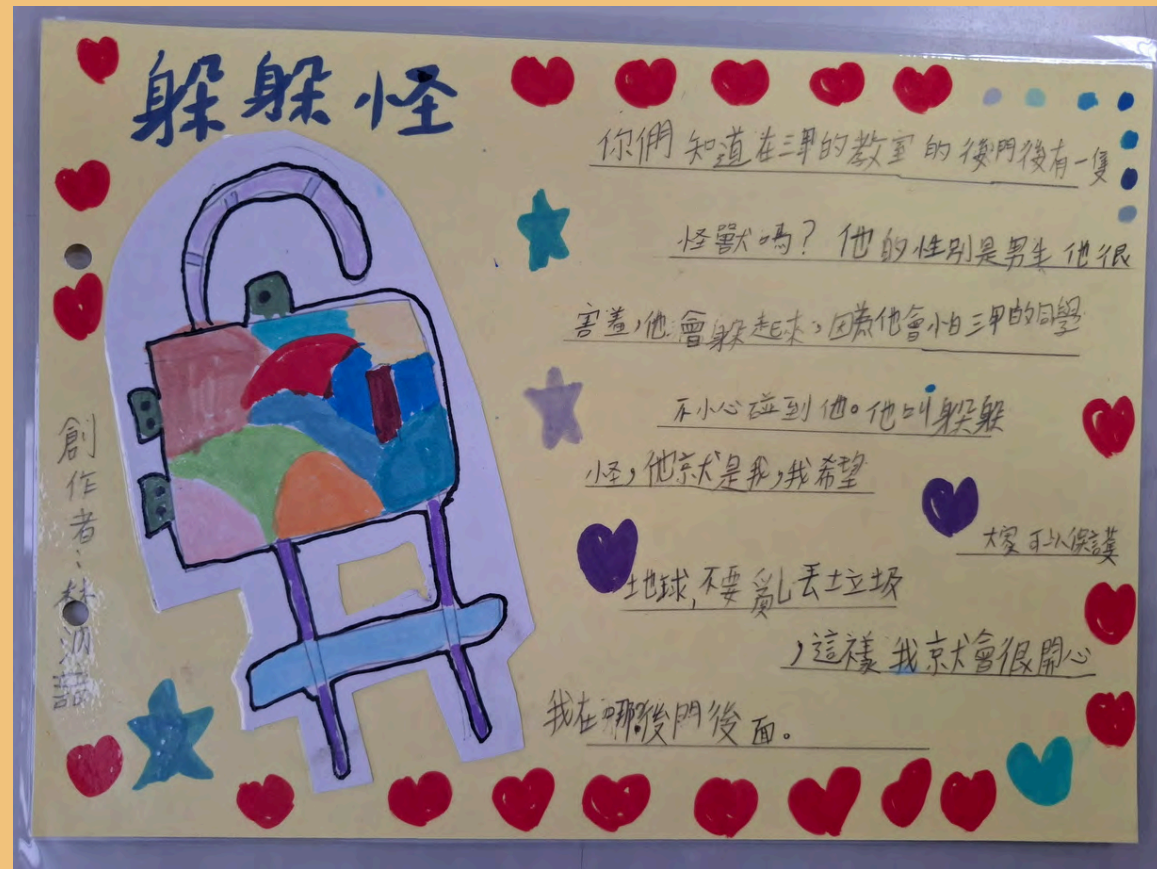 躲躲怪
你們知道在三甲的教室的後門後有一隻
怪獸嗎？他的性別是男生他很
害羞，他會躲起來，因為他會怕三甲的同學
不小心碰到他。他叫躲躲
怪，他就是我，我希望
大家可以保護
地球，不要亂丟垃圾
，這樣我就會很開心
我在哪？後門後面。
創作者：林湘語